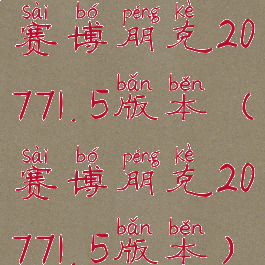 sài bó péng kè
赛博朋克20
bǎn běn
771.5版本（
sài bó péng kè
赛博朋克20
bǎn běn
771.5版本）